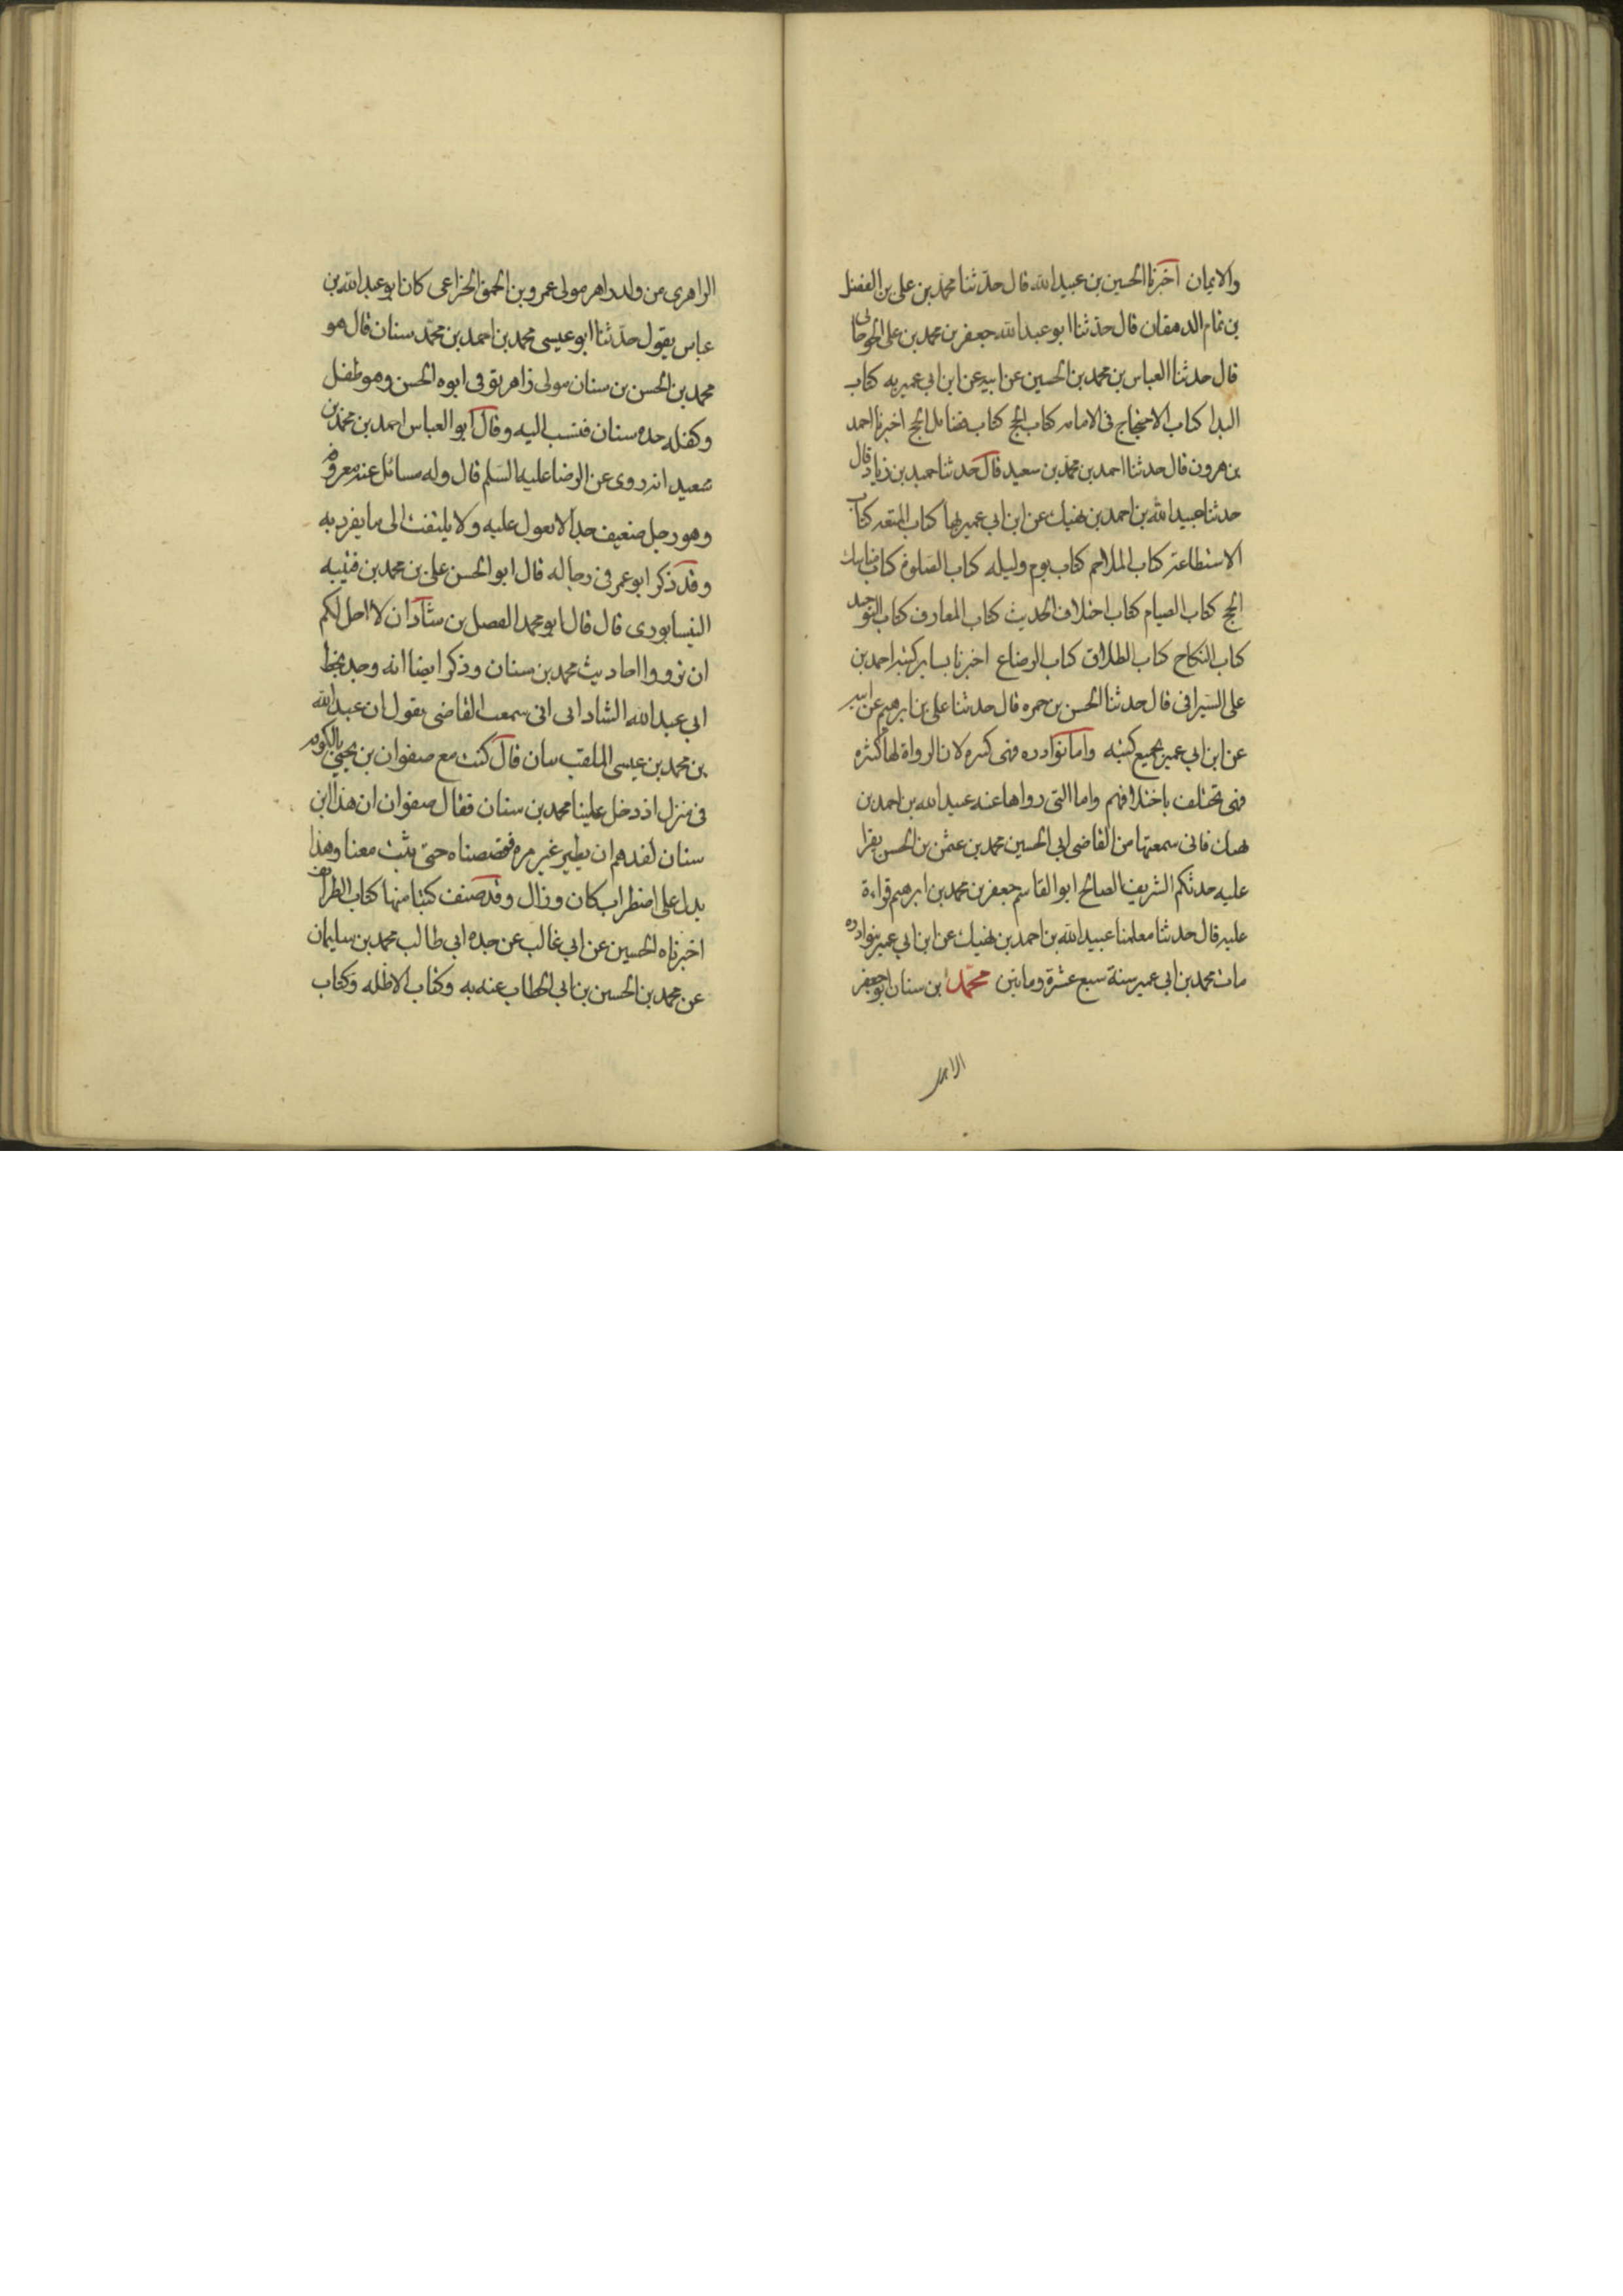 والايمان اخبرنا الحسين بن عبيد الله قال حدثنا محمد بن علي بن الفضل
بن تمام الدهقان قال حدثنا ابو عبد الله جعفر بن محمد بن علي
قال حدثنا العباس بن محمد بن الحسين عن ابيه عن ابن ابي عمير به كتاب
البدا كتاب الاحتجاج في الامامه كتاب الحج كتاب فضائل الحج اخبرنا احمد
بن هرون قال حدثنا احمد بن محمد بن سعيد قال حدثنا حميد بن زياد قال
حدثنا عبيد الله بن احمد بن نهيك عن ابن ابي عمير بها كتاب المتعه كتاب
الاستطاعة كتاب الملاحم كتاب يوم وليله كتاب الصلوة كتاب مناسك
الحج كتاب الصيام كتاب اختلاف الحديث كتاب المعارف كتاب التوحيد
كتاب النكاح كتاب الطلاق كتاب الرضاع اخبرنا بساير كتبه احمد بن
علي السيرافي قال حدثنا الحسن بن حمزه قال حدثنا علي بن ابرهيم عن ابيه
عن ابن ابي عمير بجميع كتبه واما نوادره فهي كثيره لان الرواة لها كثيره
فهي تختلف باختلافهم واما التي رواها عنه عبيد الله بن احمد بن
نهيك فاني سمعتها من القاضي ابي الحسين محمد بن عثمن بن الحسن يقرا
عليه حدثكم الشريف الصالح ابو القاسم جعفر بن محمد بن ابرهيم قراءة
عليه قال حدثنا معلمنا عبيد الله بن احمد بن نهيك عن ابن ابي عمير بنوادره
مات محمد بن ابي عمير سنة سبع عشرة وماتين محمد بن سنان ابو جعفر
الزاهري من ولد زاهر مولى عمرو بن الحمق الخزاعي كان ابو عبد الله بن
عياش يقول حدثنا ابو عيسى محمد بن احمد بن محمد سنان قال هو
محمد بن الحسن بن سنان مولى زاهر توفي ابوه الحسن وهو طفل
وكفله جده سنان فنسب اليه وقال ابو العباس احمد بن محمد بن
سعيد انه روى عن الرضا عليه السلم قال وله مسائل عنه معروفه
وهو رجل ضعيف جدا لا يعول عليه ولا يلتفت الى ما يفرد به
وقد ذكر ابو عمر في رجاله قال ابو الحسن علي بن محمد بن قتيبه
النيسابوري قال قال ابو محمد الفضل بن شاذان لا احل لكم
ان ترووا احاديث محمد بن سنان وذكر ايضا انه وجد بخط
ابي عبد الله الشاداني اني سمعت القاضي يقول ان عبد الله
بن محمد بن عيسى الملقب بنان قال كنت مع صفوان بن يحيى بالكوفه
في منزل اذ دخل علينا محمد بن سنان فقال صفوان ان هذا ابن
سنان لقد هم ان يطير غير مره فقصصناه حتى يثبت معنا وهذا
يدل على اضطراب كان وزال وقد صنف كتبا منها كتاب الطرائف
اخبرناه الحسين عن ابي غالب عن جده ابي طالب محمد بن سليمان
عن محمد بن الحسين بن ابي الخطاب عنه به وكتاب الاظله وكتاب